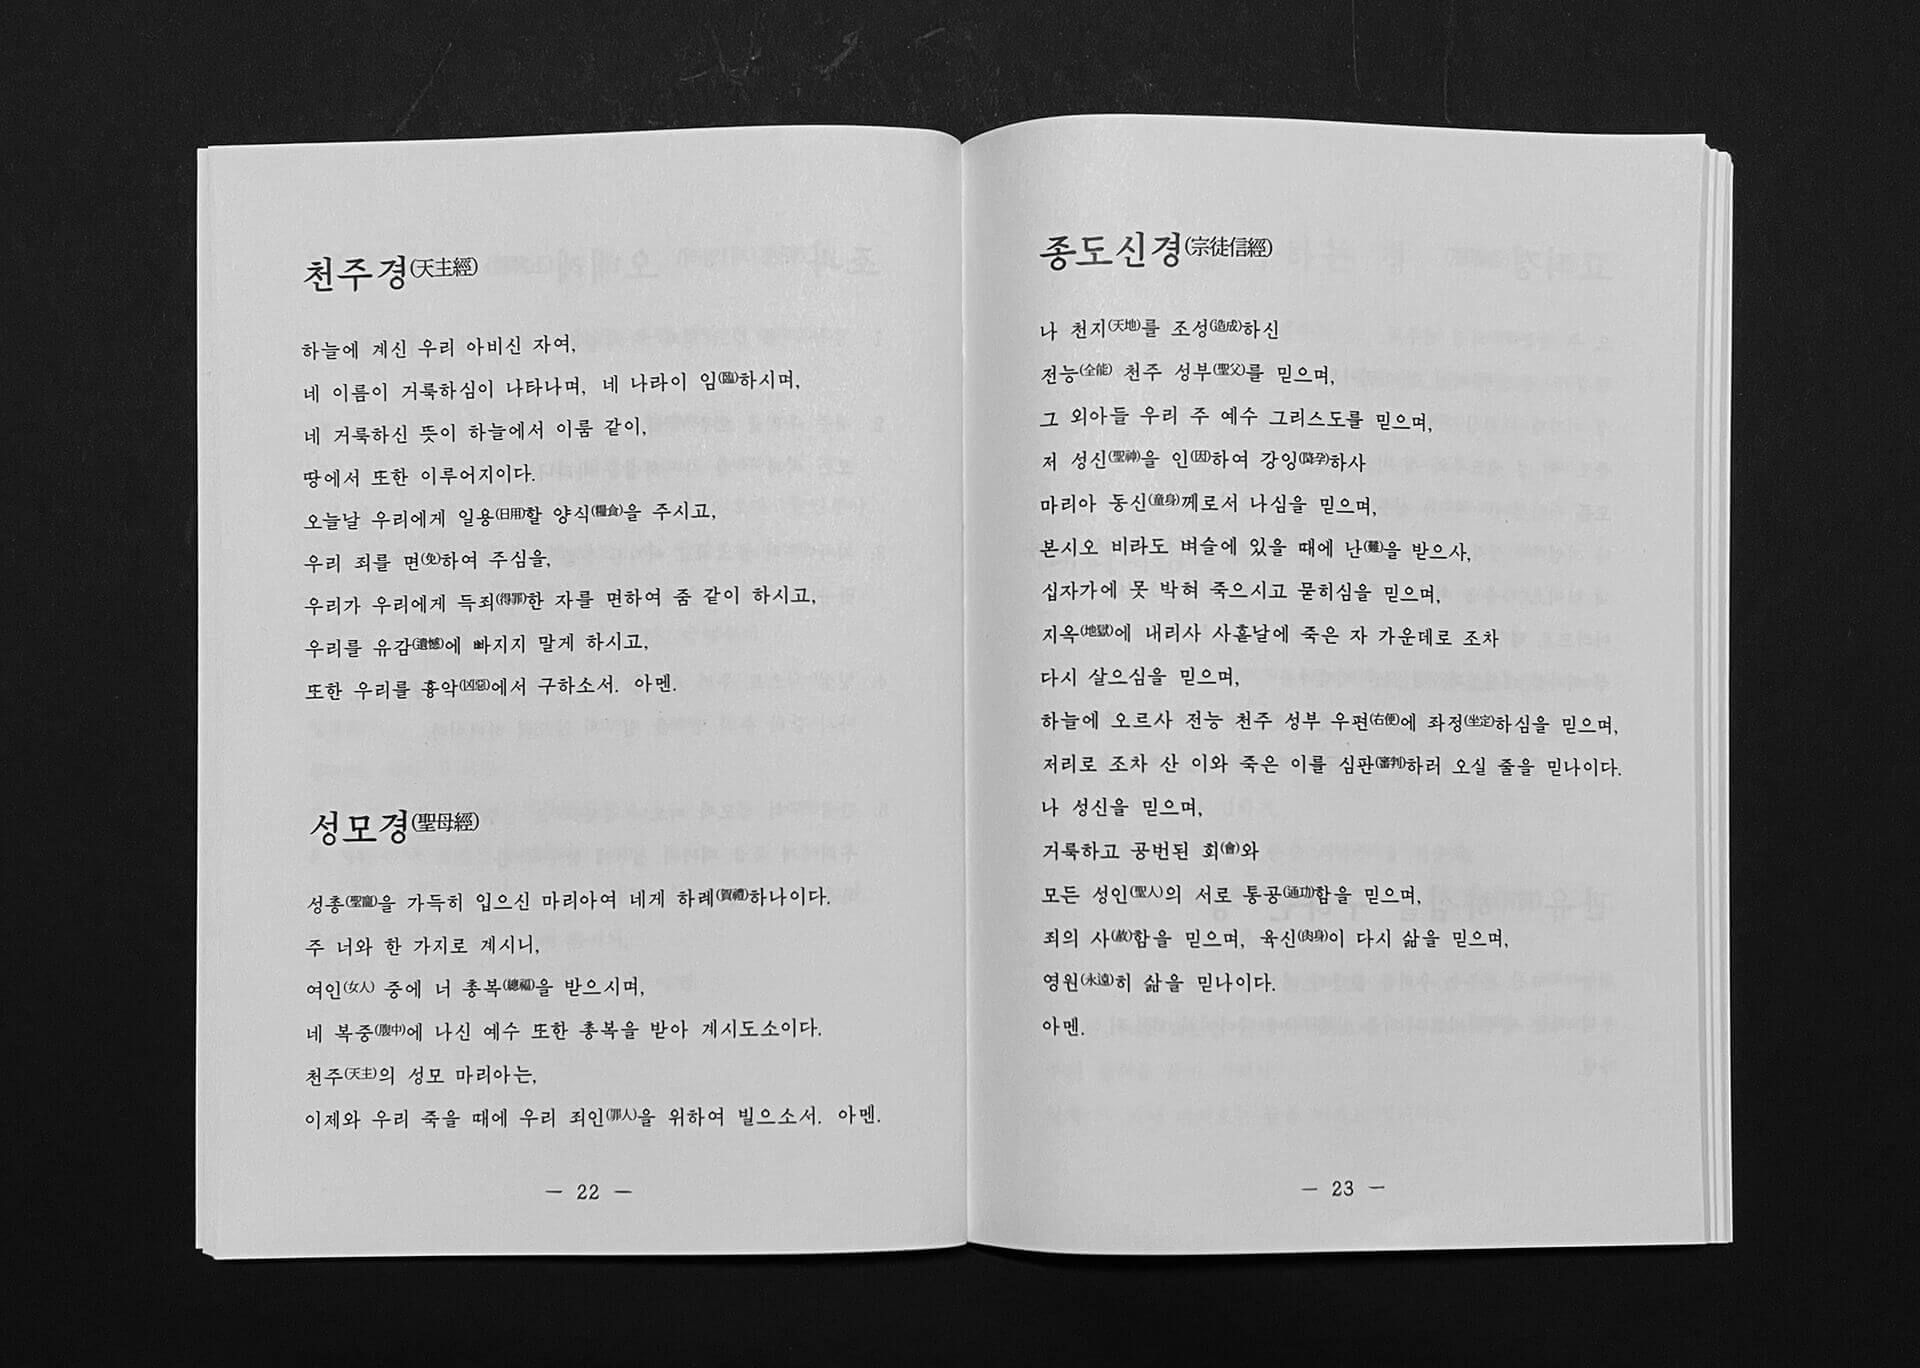 천주경(天主經)
하늘에 계신 우리 아비신 자여,
네 이름이 거룩하심이 나타나며, 네 나라이 임(臨)하시며,
네 거룩하신 뜻이 하늘에서 이룸 같이,
땅에서 또한 이루어지이다.
오늘날 우리에게 일용(日用)할 양식(糧食)을 주시고,
우리 죄를 면(免)하여 주심을,
우리가 우리에게 득죄(得罪)한 자를 면하여 줌 같이 하시고,
우리를 유감(遺憾)에 빠지지 말게 하시고,
또한 우리를 흉악(凶惡)에서 구하소서. 아멘.
성모경(聖母經)
성총(聖寵)을 가득히 입으신 마리아여 네게 하례(賀禮)하나이다.
주 너와 한 가지로 계시니,
여인(女人) 중에 너 총복(總福)을 받으시며,
네 복중(腹中)에 나신 예수 또한 총복을 받아 계시도소이다.
천주(天主)의 성모 마리아는,
이제와 우리 죽을 때에 우리 죄인(罪人)을 위하여 빌으소서. 아멘.
— 22 —
종도신경(宗徒信經)
나 천지(天地)를 조성(造成)하신
전능(全能) 천주 성부(聖父)를 믿으며,
그 외아들 우리 주 예수 그리스도를 믿으며,
저 성신(聖神)을 인(因)하여 강잉(降孕)하사
마리아 동신(童身)께로서 나심을 믿으며,
본시오 비라도 벼슬에 있을 때에 난(難)을 받으사,
십자가에 못 박혀 죽으시고 묻히심을 믿으며,
지옥(地獄)에 내리사 사흗날에 죽은 자 가운데로 조차
다시 살으심을 믿으며,
하늘에 오르사 전능 천주 성부 우편(右便)에 좌정(坐定)하심을 믿으며,
저리로 조차 산 이와 죽은 이를 심판(審判)하러 오실 줄을 믿나이다.
나 성신을 믿으며,
거룩하고 공번된 회(會)와
모든 성인(聖人)의 서로 통공(通功)함을 믿으며,
죄의 사(赦)함을 믿으며, 육신(肉身)이 다시 삶을 믿으며,
영원(永遠)히 삶을 믿나이다.
아멘.
— 23 —